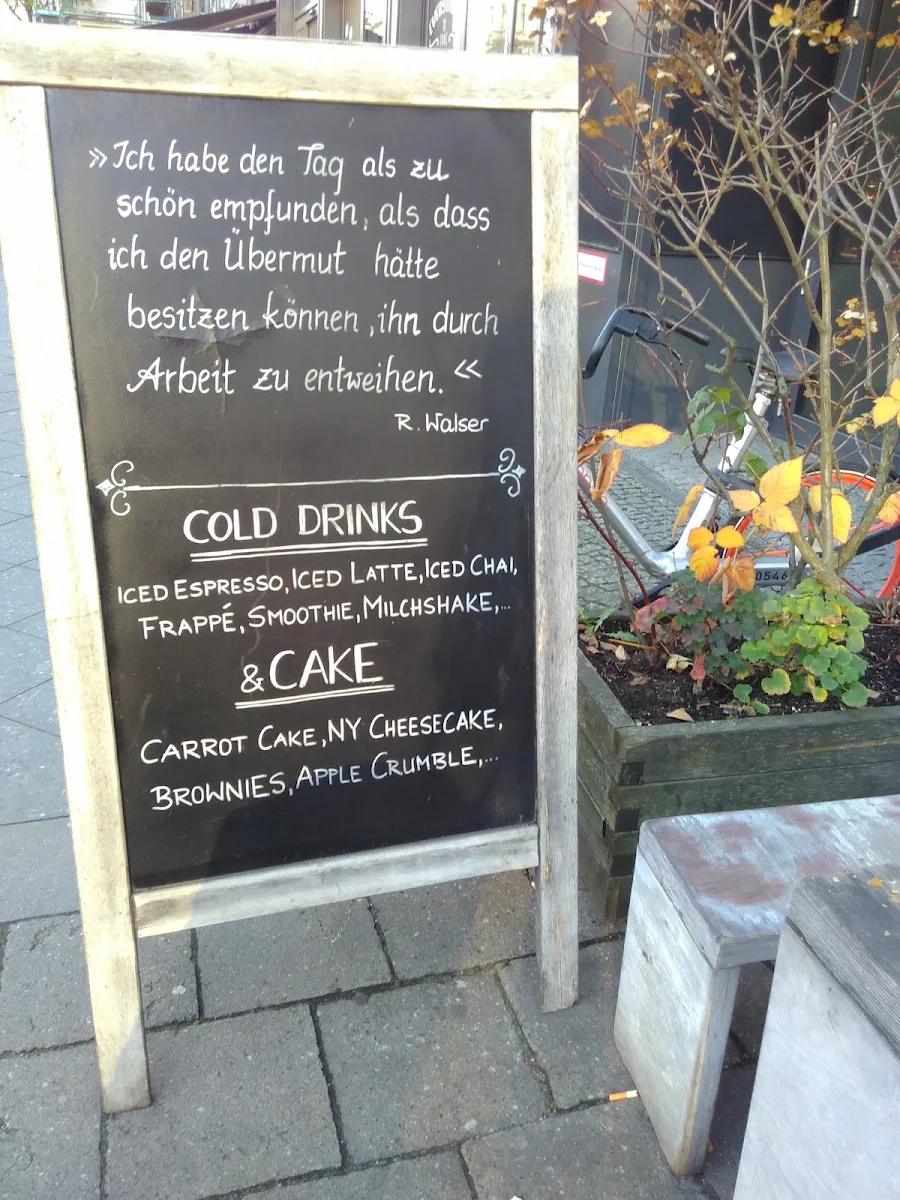 »Ich habe den Tag als zu
schön empfunden, als dass
ich den Übermut hätte
besitzen können, ihn durch
Arbeit zu entweihen.«
R. Walser
COLD DRINKS
ICED ESPRESSO, ICED LATTE, ICED CHAI,
FRAPPÉ, SMOOTHIE, MILCHSHAKE,...
& CAKE
CARROT CAKE, NY CHEESECAKE,
BROWNIES, APPLE CRUMBLE,...
0546